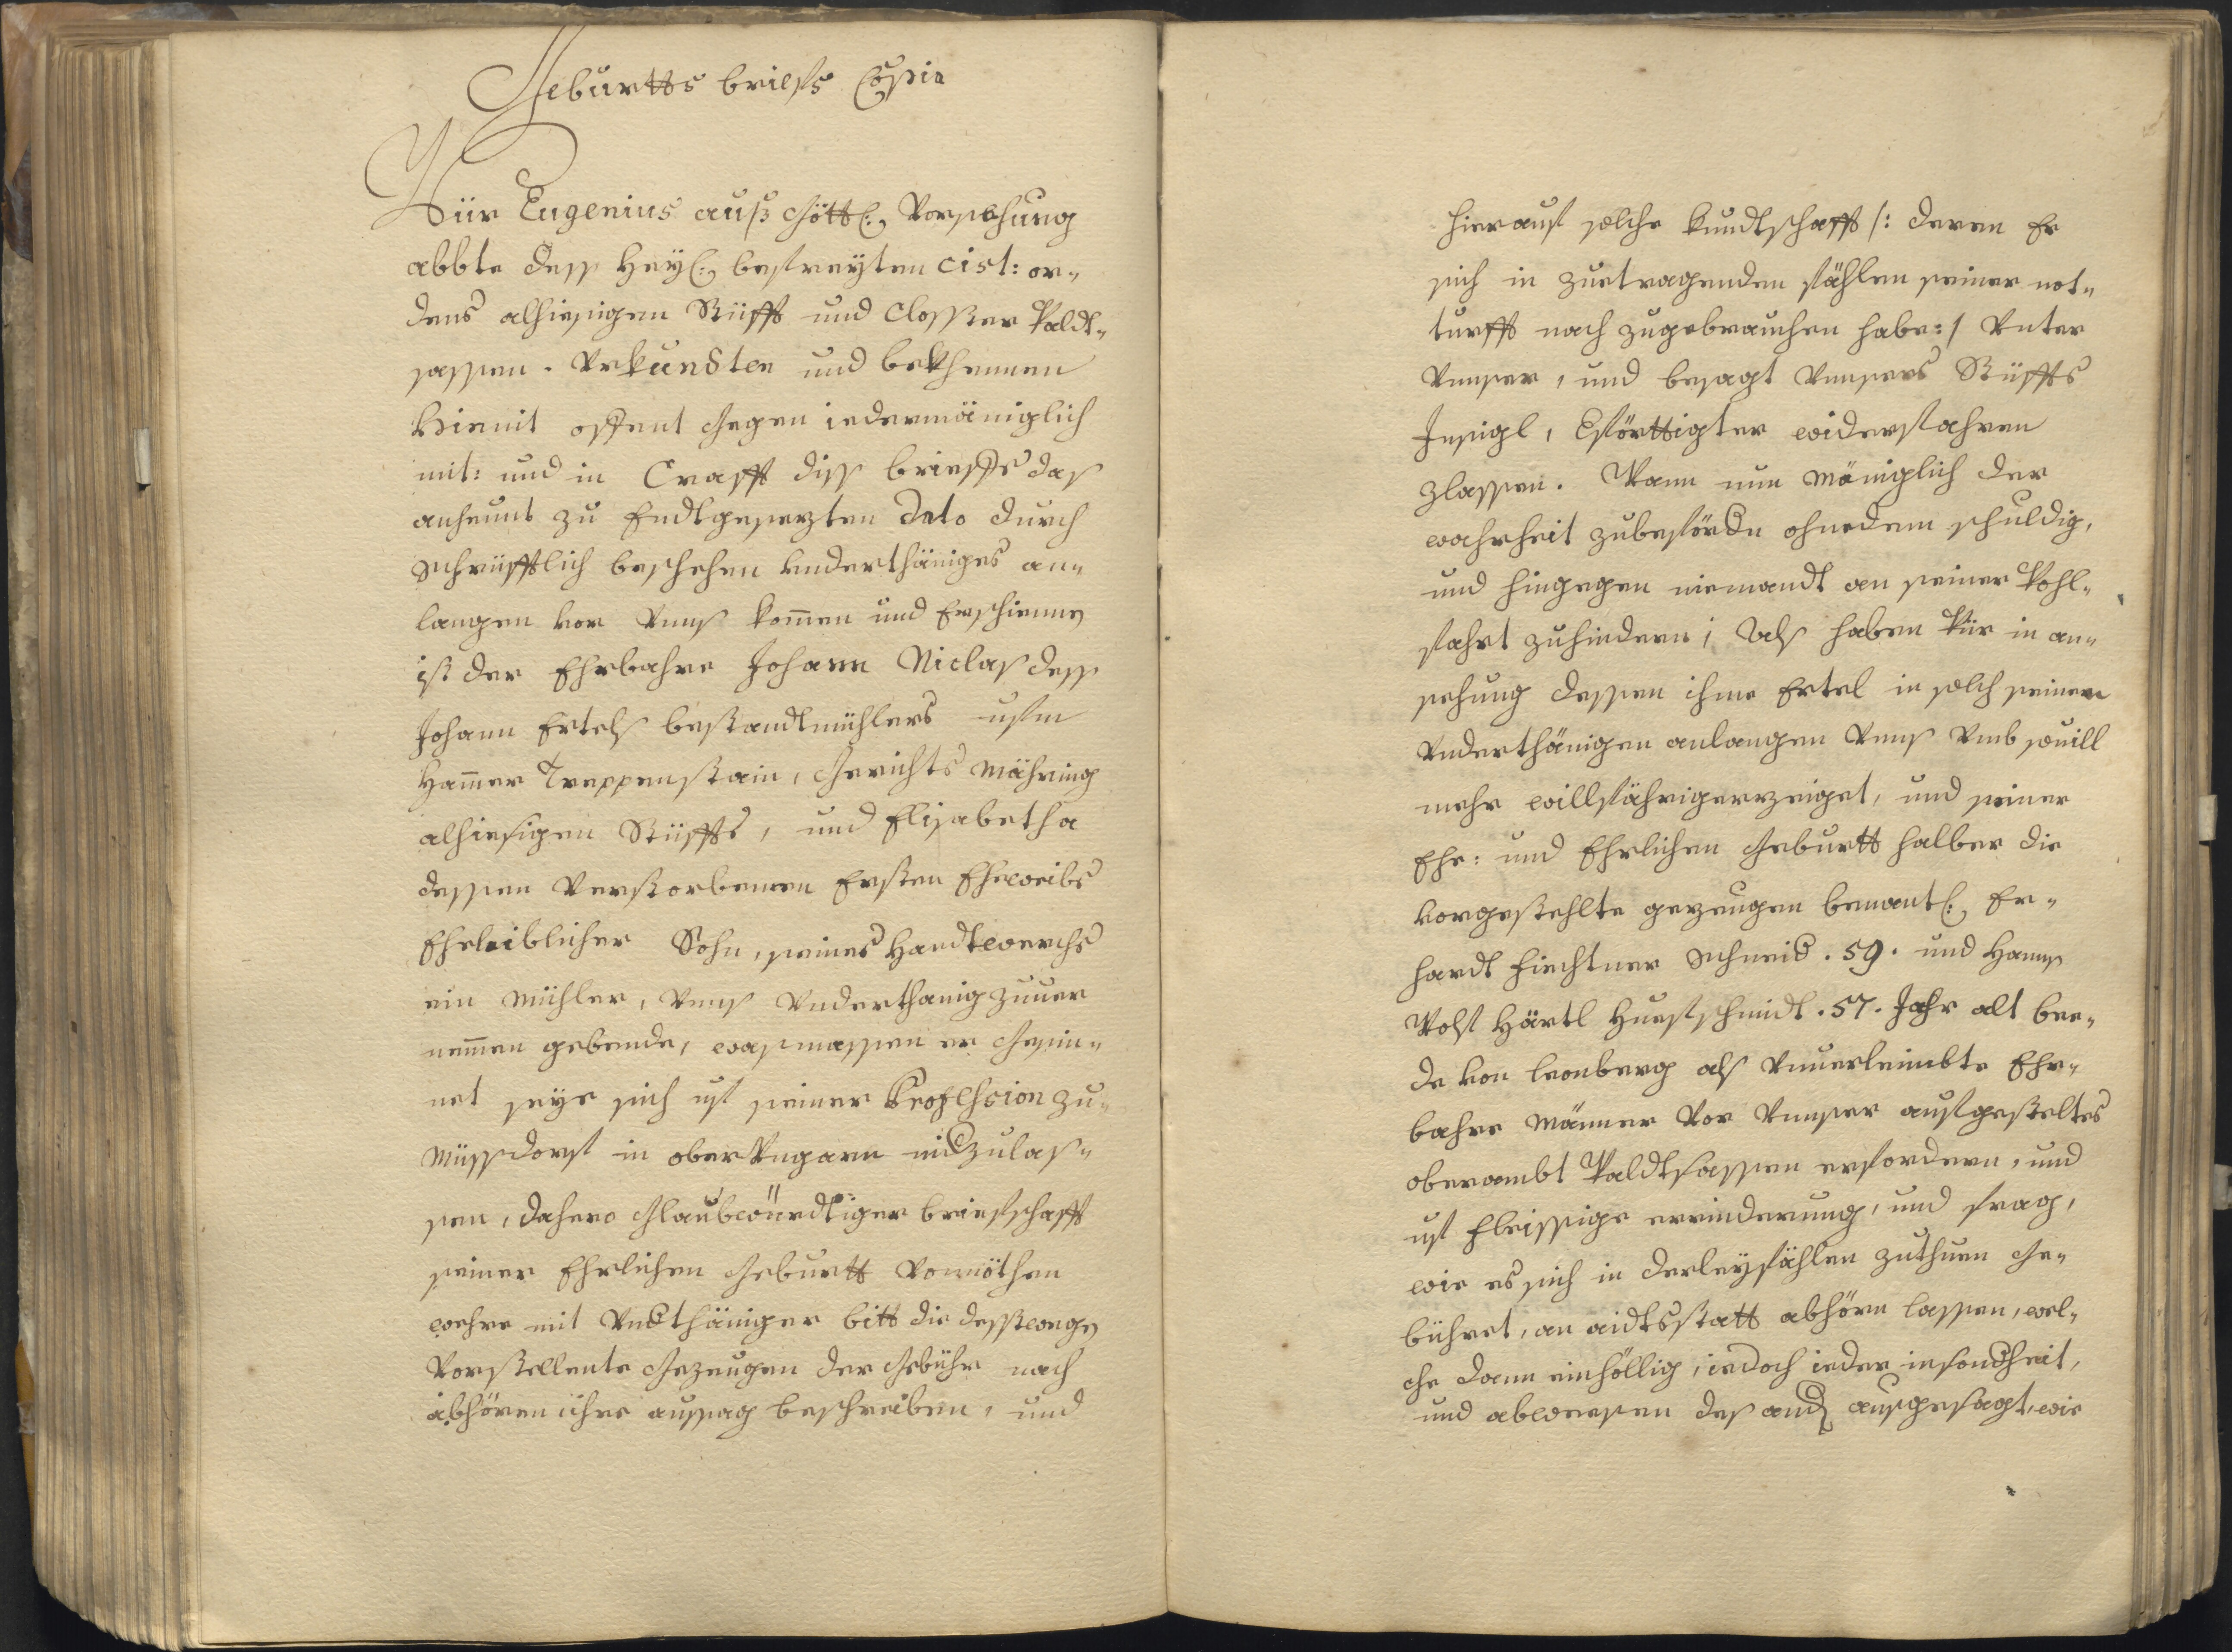 Geburtts briefs Copia
Wür Eugenius auß Göttl: Vorsehung
abbte dess Heyl: befreyten Cist: or„
dens alhiesigen Stüfft und Closster Waldt„
sassen. Urkundten und bekhennen
Hiemit offent Gegen iedermäniglich
mit: und in Crafft diss brieffs das
anheunt zu Endtgesezten dato durch
schrüfftlich beschehen underthäniges an„
langen vor Unns kom̄en und Erschienen
ist der Ehrbahre Johann Niclas dess
Johann Ertels bestandtmühlers ufm
Ham̄er Treppenstain, Gerichts Mähring
alhiesigen Stüffts, und Elisabetha
dessen Verstorbenen Ersten Eheweibs
Eheleiblicher Sohn, seines Handtwerchs
ein Mühler, Unns Underthanig zuuer
nem̄en gebende, wasmassen er Gesin„
net seye sich uf seiner Profession zu„
Müssdorf in ober Ungarn nidzulas„
sen, dahero Glaubwürdtiger briefschafft
seiner Ehrlichen Geburtt Vonnöthen
wehre mit Undthäniger bitt die desstwegen
Vorstellente Gezeugen der Gebühr nach
abhören ihre aussag beschreiben, und
hierauf solche kundtschafft /: deren Er
sich in zuetragenden fählen seiner not„
turfft nach zugebrauchen habe :/ Unter
Unnser, und besagt Unnsers Stüffts
Insigl, Eförttigter widerfahren
zlassen. Wann nun Mäniglich der
wahrheit zubefördn ohnedem schuldig,
und hingegen niemandt an seiner Wohl„
fahrt zuhindern; Als haben Wür in an„
sehung dessen ihme Ertel in solch seinem
Underthänigen anlangen Unns Umb souill
mehr willfährigerzeiget, und seiner
Ehe: und Ehrlichen Geburtt halber die
vorgestehlte gezeugen benantl: Er„
hardt Fiechtner Schneid. 59. und Hanns
Wolf Härtl Huefschmidt. 57. Jahr alt bee„
de von Leonberg als Unuerleimbte Ehr„
bahre Männer Vor Unnser aufgesteltes
oberambt Waldtsassen erfordern, und
uf fleissige errinderung, und frag,
wie es sich in derleyfählen zuthuen Ge„
bühret, an aidtsstatt abhörn lassen, wel„
che dann einhöllig, iedoch ieder insondheit,
und abwesen des andn ausgesagt, wie